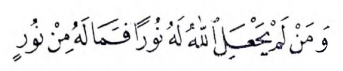 وَمَنْ لَمْ يَجْعَلِ ٱللَّهُ لَهُ نُورًا فَمَا لَهُ مِنْ نُورٍ